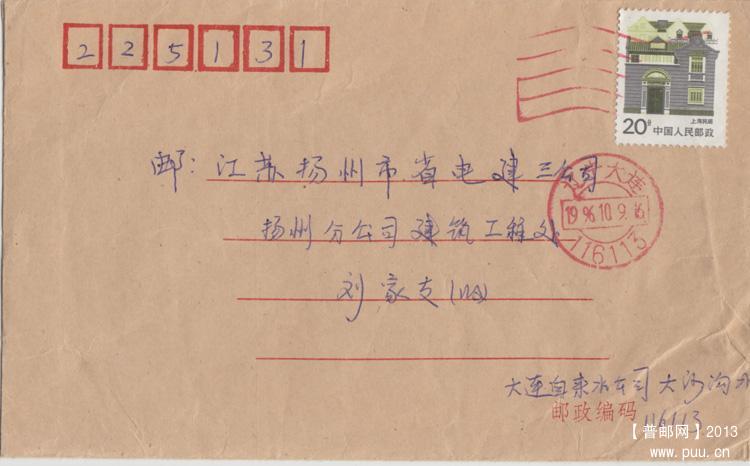 225131
上海民居
20分
中国人民邮政
邮: 江苏扬州市省电建三公司
大连
1996.10.9.16
116113
扬州分公司建筑工程处
刘家支(収)
大连自来水公司大沙沟水
邮政编码
116113
【普邮网】2013
www.puu.cn